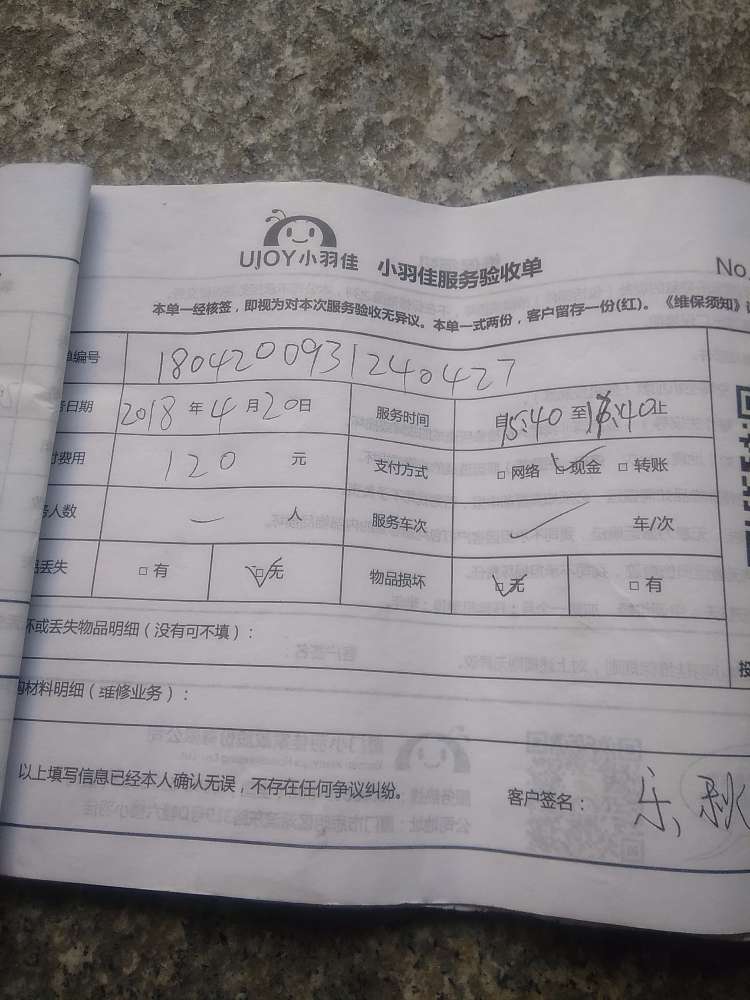 UJOY小羽佳 小羽佳服务验收单 No.
本单一经核签，即视为对本次服务验收无异议。本单一式两份，客户留存一份(红)。《维保须知》
编号 1804200931240427
日期 2018 年 4 月 20 日 服务时间 自 15:40 至 :40 止
费用 120 元 支付方式 □网络 □现金 □转账
人数 一 人 服务车次 车/次
丢失 □有 □无 物品损坏 □无 □有
坏或丢失物品明细（没有可不填）：
材料明细（维修业务）：
以上填写信息已经本人确认无误，不存在任何争议纠纷。 客户签名：